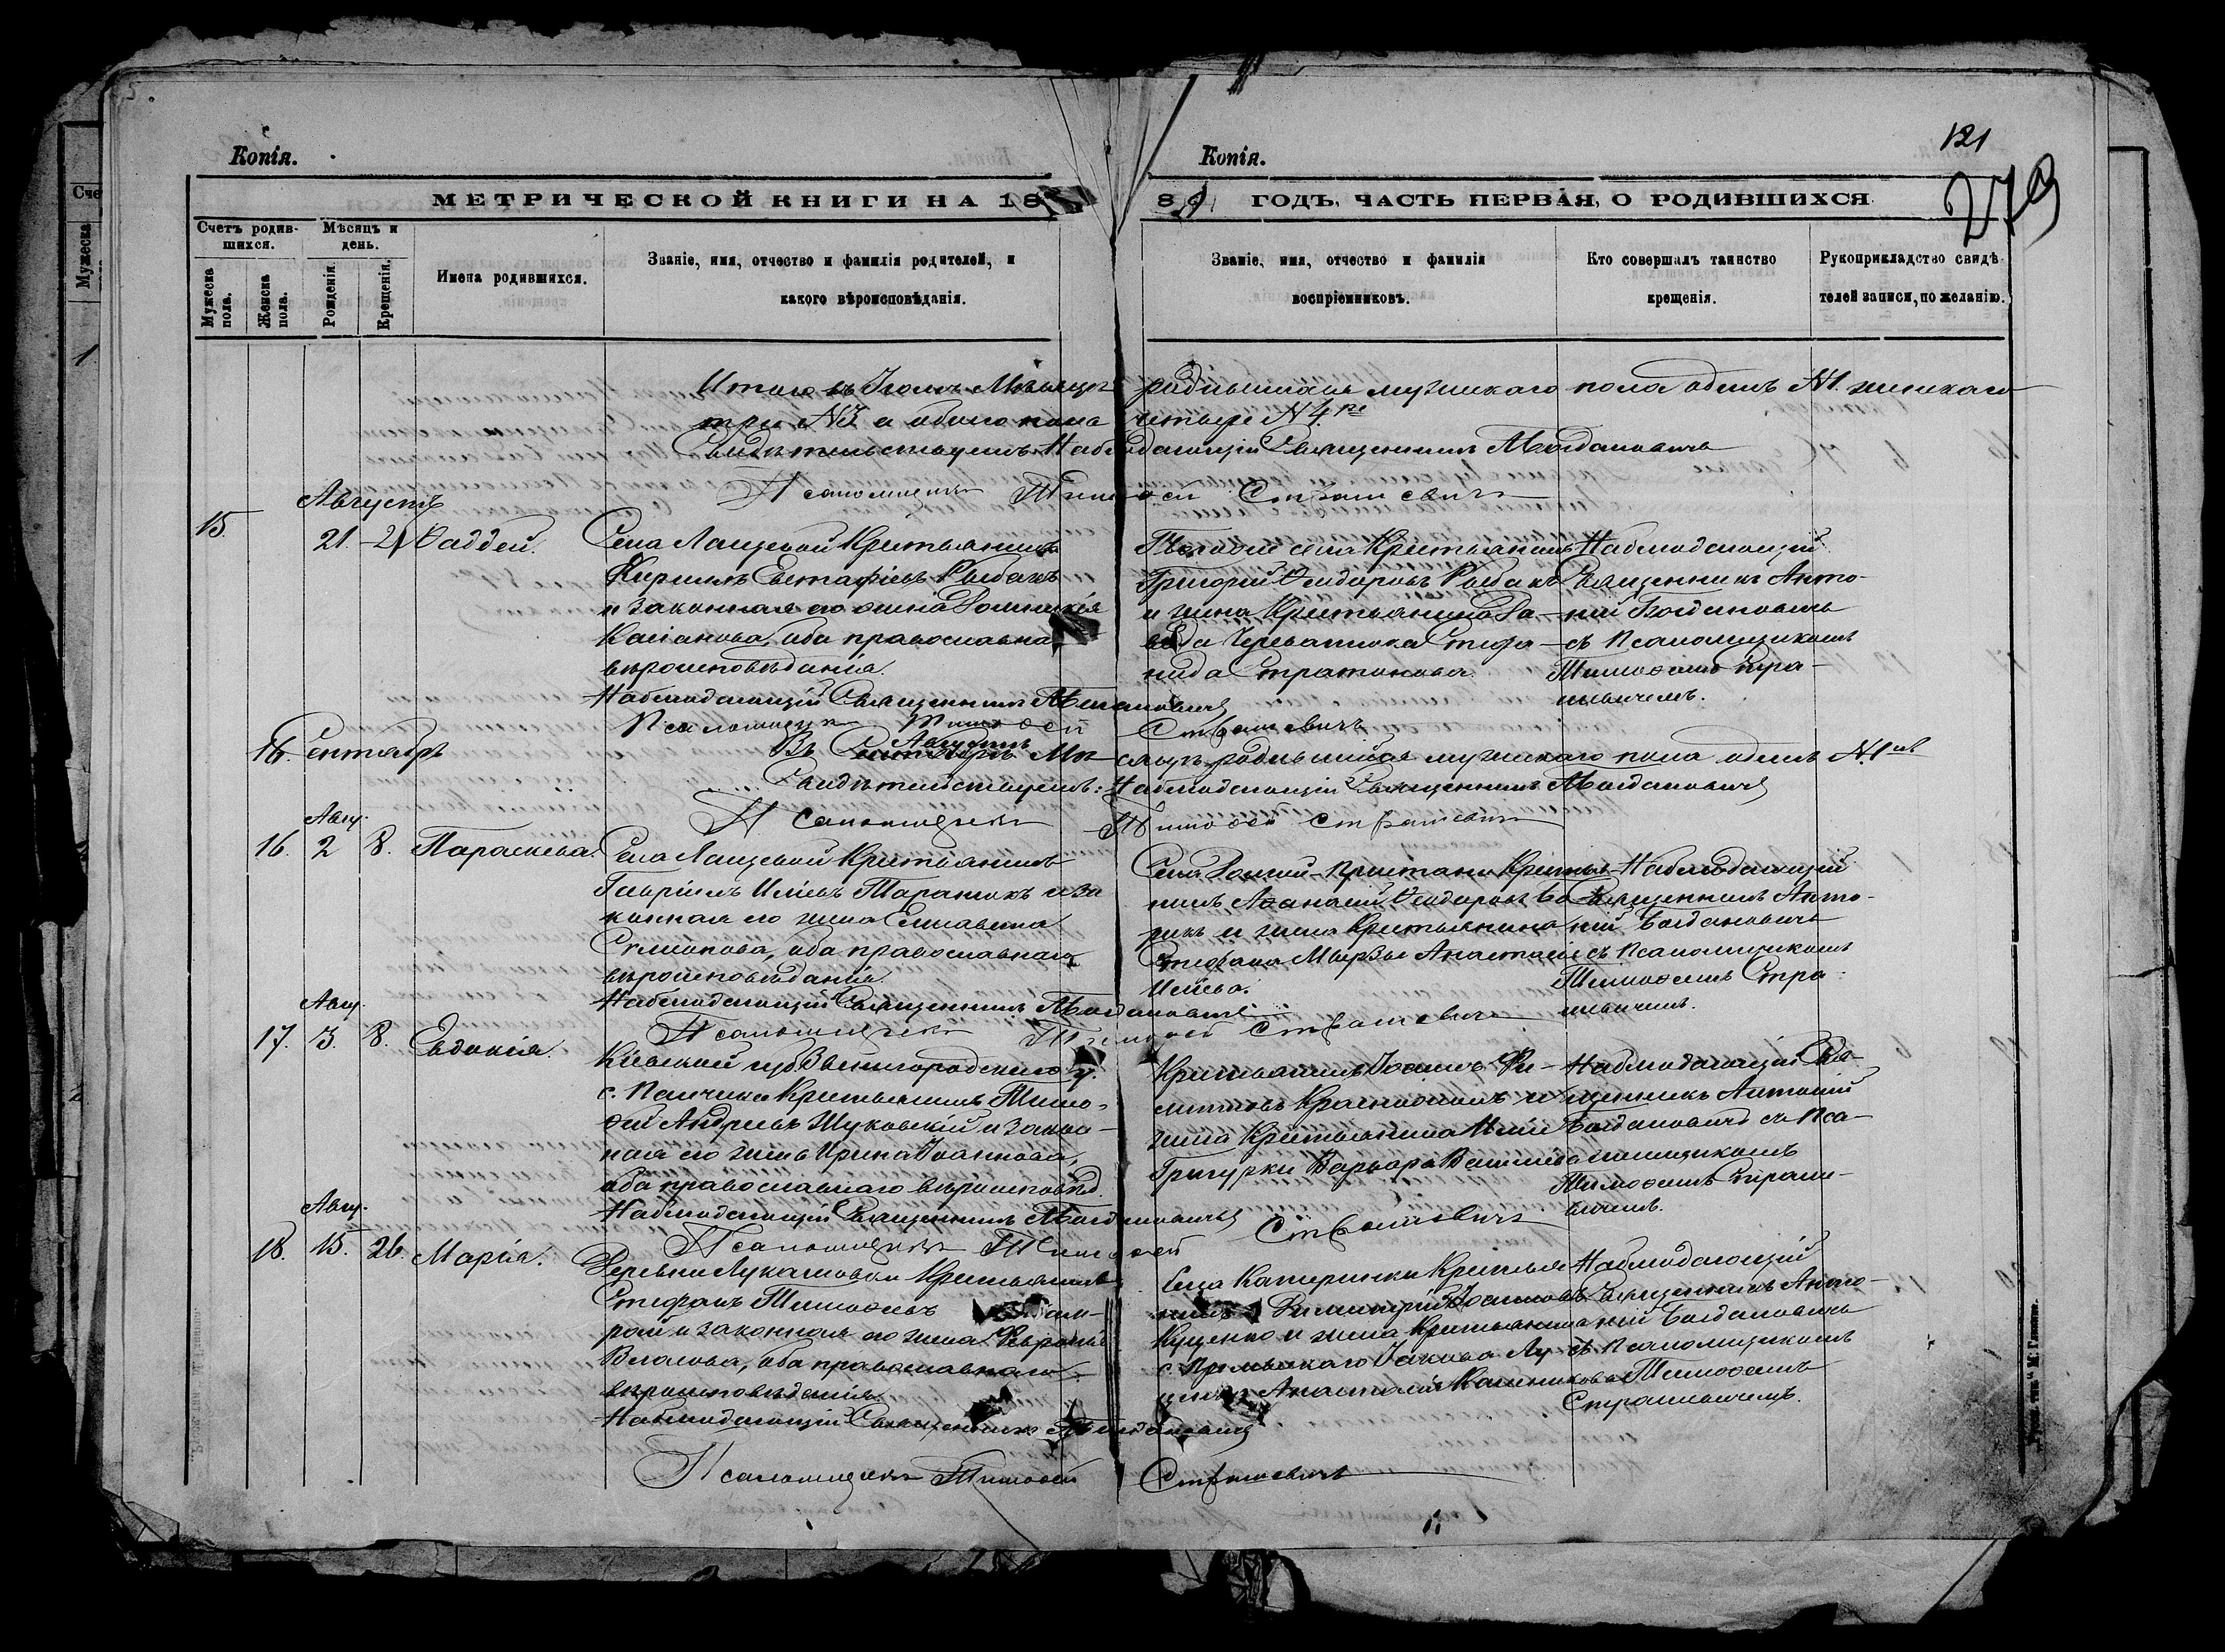 121
279
Копія.
Копія.
МЕТРИЧЕСКОЙ КНИГИ НА 18
8 ГОДЪ, ЧАСТЬ ПЕРВАЯ, О РОДИВШИХСЯ
Счетъ родив-
шихся.
Мужеска пола.
Женска пола.
Мѣсяцъ и
день.
Рожденія.
Крещенія.
Имена родившихся.
Званіе, имя, отчество и фамилія родителей, и
какого вѣроисповѣданія.
Званіе, имя, отчество и фамилія
воспріемниковъ.
Кто совершалъ таинство
крещенія.
Рукоприкладство свидѣ-
телей записи, по желанію.
Итого въ Іюлѣ Мѣсяцѣ родившихся мужескаго пола одинъ №1. женскаго
три №3 а обоего пола четыре №4
Свидѣтельствуемъ: Наблюдающій Священникъ Богдановичъ
Псаломщикъ Тимоѳей Страшевичъ
Августъ
15. 21. Ѳаддей.
Села Лащевой Крестьянинъ
Кириллъ Евстафіевъ Рыбакъ
и законная его жена Домникія
Касіанова, оба православна
вѣроисповѣданія.
Наблюдающій Священникъ Богдановичъ
Псаломщикъ Тимоѳей Страшевичъ
Того же села Крестьянинъ
Григорій Ѳеодоровъ Рыбакъ
и жена Крестьянина Са-
ввы Стефа-
нида Стратонова
Наблюдающій
Священникъ Анто-
ній Богдановичъ
съ Псаломщикомъ
Тимоѳеемъ Стра-
шевичемъ.
16. Сентябрь
Въ Августѣ Мѣсяцѣ родившійся мужескаго пола одинъ №1
Свидѣтельствуемъ: Наблюдающій Священникъ Богдановичъ
Псаломщикъ Тимоѳей Страшевичъ
Авгу.
16. 2 8. Параскева.
Села Лащевой Крестьянинъ
Гавріилъ Иліевъ Таранюкъ и за
конная его жена Елисавета
оба православнаго
вѣроисповѣданія
Наблюдающій Священникъ Богдановичъ
Псаломщикъ Тимоѳей Страшевичъ
Села Пристани Крестья-
нинъ Аѳанасій Ѳеодоровъ
и жена Крестьянина
Стефана Мырзы Анастасія
Иліева.
Наблюдающій
Священникъ Анто-
ній Богдановичъ
съ Псаломщикомъ
Тимоѳеемъ Стра-
шевичемъ.
Авгу.
17. 3. 8. Евдокія.
Кіевской губ Звенигородскаго у.
с. Крестьянинъ Тимо-
ѳей Андреевъ Жуковскій и закон-
ная его жена Ирина Іоаннова,
оба православнаго вѣроисповѣд.
Наблюдающій Священникъ Богдановичъ
Псаломщикъ Тимоѳей Страшевичъ
Крестьянинъ Іоаннъ Фи-
липповъ и
жена Крестьянина Иліи
Григурки Варвара Василіева
Наблюдающій Свя-
щенникъ Антоній
Богдановичъ съ Пса-
ломщикомъ
Тимоѳеемъ Страше-
вичемъ.
Авгу.
18. 15. 26. Марія.
Деревни Лукашовки Крестьянинъ
Стефанъ Тимоѳеевъ
и законная его жена Февронія
Власова, оба православнаго
вѣроисповѣданія
Наблюдающій Священникъ Богдановичъ
Псаломщикъ Тимоѳей Страшевичъ
Села Катеринки Крестья-
нинъ Димитрій Іоанновъ
Куценко и жена Крестьянина
Іакова
Анастасія Калиникова
Наблюдающій
Священникъ Анто-
ній Богдановичъ
съ Псаломщикомъ
Тимоѳеемъ
Страшевичемъ.